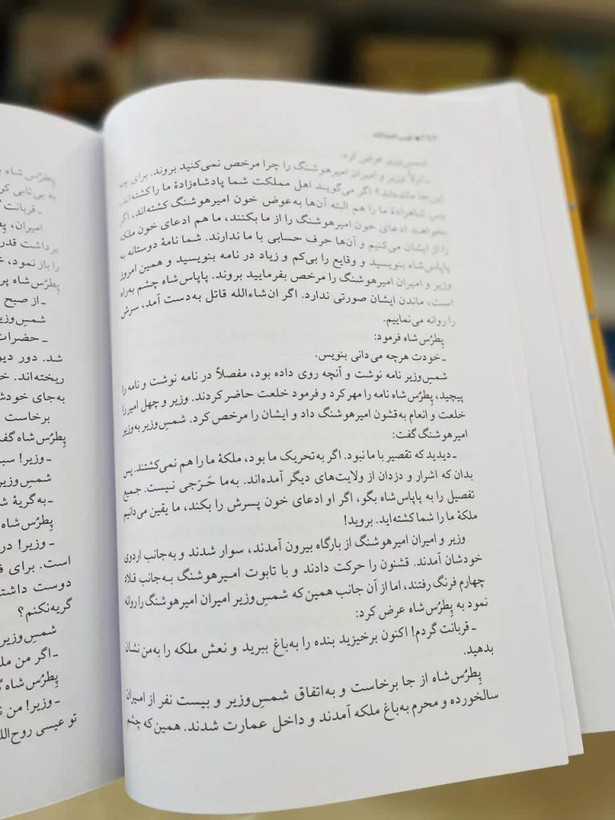 شمس‌وزیر عرض کرد:
ـ اولاً وزیر و امیران امیرهوشنگ را چرا مرخص نمی‌کنید بروند. برای چه
این‌جا مانده‌اند؟ اگر می‌گویند اهل مملکت شما پادشاه‌زادهٔ ما را کشته‌اند،
پس شاهزادهٔ ما را هم البته آن‌ها به‌عوض خون امیرهوشنگ کشته‌اند. اگر
بخواهند ادعای خون امیرهوشنگ را از ما بکنند، ما هم ادعای خون ملکه
را از ایشان می‌کنیم و آن‌ها حرف حسابی با ما ندارند. شما نامهٔ دوستانه به
پاپاس‌شاه بنویسید و وقایع را بی‌کم و زیاد در نامه بنویسید و همین امروز
وزیر و امیران امیرهوشنگ را مرخص بفرمایید بروند. پاپاس‌شاه چشم به‌راه
است، ماندن ایشان صورتی ندارد. اگر ان‌شاءالله قاتل به‌دست آمد، سرش
را روانه می‌نماییم.
پِطرُس‌شاه فرمود:
ـ خودت هرچه می‌دانی بنویس.
شمس‌وزیر نامه نوشت و آنچه روی داده بود، مفصلاً در نامه نوشت و نامه را
پیچید، پِطرُس‌شاه نامه را مهر کرد و فرمود خلعت حاضر کردند. وزیر و چهل امیر را
خلعت و انعام به‌قشون امیرهوشنگ داد و ایشان را مرخص کرد. شمس‌وزیر به‌وزیر
امیرهوشنگ گفت:
ـ دیدید که تقصیر با ما نبود. اگر به‌تحریک ما بود، ملکهٔ ما را هم نمی‌کشتند. پس
بدان که اشرار و دزدان از ولایت‌های دیگر آمده‌اند. به‌ما حَرَجی نیست. جمیع
تفصیل را به پاپاس‌شاه بگو، اگر او ادعای خون پسرش را بکند، ما یقین می‌دانیم
ملکهٔ ما را شما کشته‌اید. بروید!
وزیر و امیران امیرهوشنگ از بارگاه بیرون آمدند، سوار شدند و به‌جانب اردوی
خودشان آمدند. قشون را حرکت دادند و با تابوت امیرهوشنگ به‌جانب قلاد
چهارم فرنگ رفتند، اما از آن جانب همین که شمس‌وزیر امیران امیرهوشنگ را روانه
نمود به پِطرُس‌شاه عرض کرد:
ـ قربانت گردم! اکنون برخیزید بنده را به‌باغ ببرید و نعش ملکه را به‌من نشان
بدهید.
پِطرُس‌شاه از جا برخاست و به‌اتفاق شمس‌وزیر و بیست نفر از امیران
سالخورده و محرم به‌باغ ملکه آمدند و داخل عمارت شدند. همین که چشم
پِطرُس‌شاه
به بی‌تابی کر
ـ قربانت گ
امیران، پِط
برداشت قدر
را باز نمود، خ
پِطرُس‌شاه پر
ـ از صبح
شمس‌وزیر
ـ حضرات
شد. دور دیو
ریخته‌اند. خ
به‌جای خودش
برخاست
پِطرُس‌شاه گف
ـ وزیر! سب
شمس‌وزیر
ـ به‌گریهٔ ش
پِطرُس‌شاه
ـ وزیر! در
است. برای
دوست داشت
گریه نکنم؟
شمس‌وزیر
ـ اگر من مل
پِطرُس‌شاه گ
ـ وزیر! من
تو عیسی روح‌الل